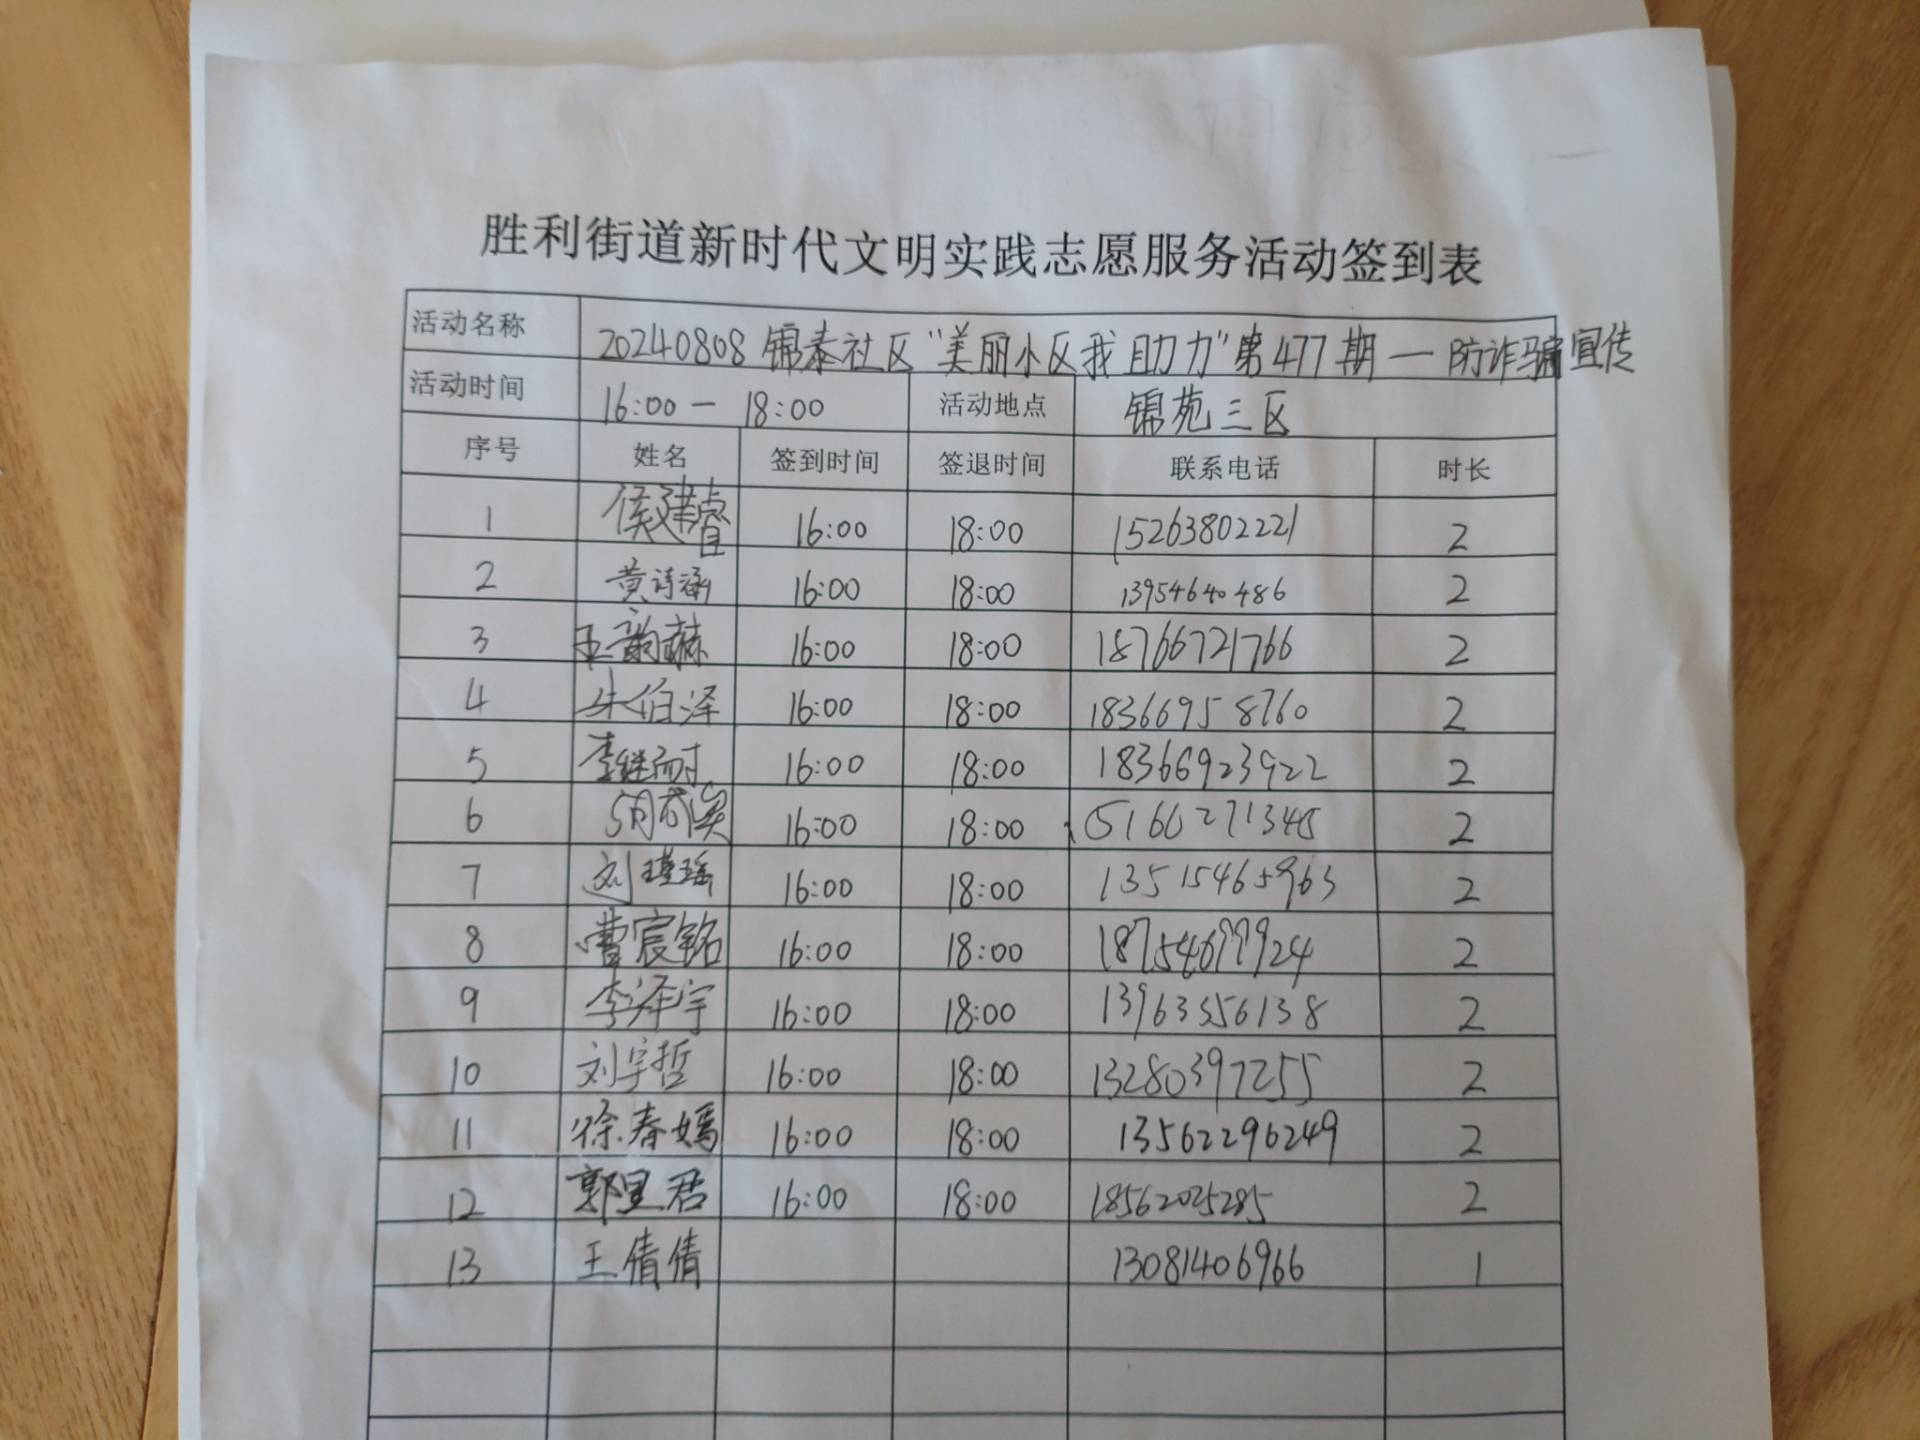 胜利街道新时代文明实践志愿服务活动签到表
活动名称 20240808 锦泰社区“美丽小区我助力”第477期一防诈骗宣传
活动时间 16:00一18:00 活动地点 锦苑三区
序号 姓名 签到时间 签退时间 联系电话 时长
1 侯建睿 16:00 18:00 15263802221 2
2 黄诗涵 16:00 18:00 13954640486 2
3 王韵赫 16:00 18:00 18766721766 2
4 朱伯泽 16:00 18:00 18366958760 2
5 李继耐 16:00 18:00 18366923922 2
6 16:00 18:00 2
7 刘瑾瑶 16:00 18:00 13515465963 2
8 曹宸铭 16:00 18:00 18754699924 2
9 李泽宇 16:00 18:00 13963356138 2
10 刘宇哲 16:00 18:00 13280397255 2
11 徐春嫣 16:00 18:00 13562296249 2
12 郭里君 16:00 18:00 18562025285 2
13 王倩倩 13081406966 1